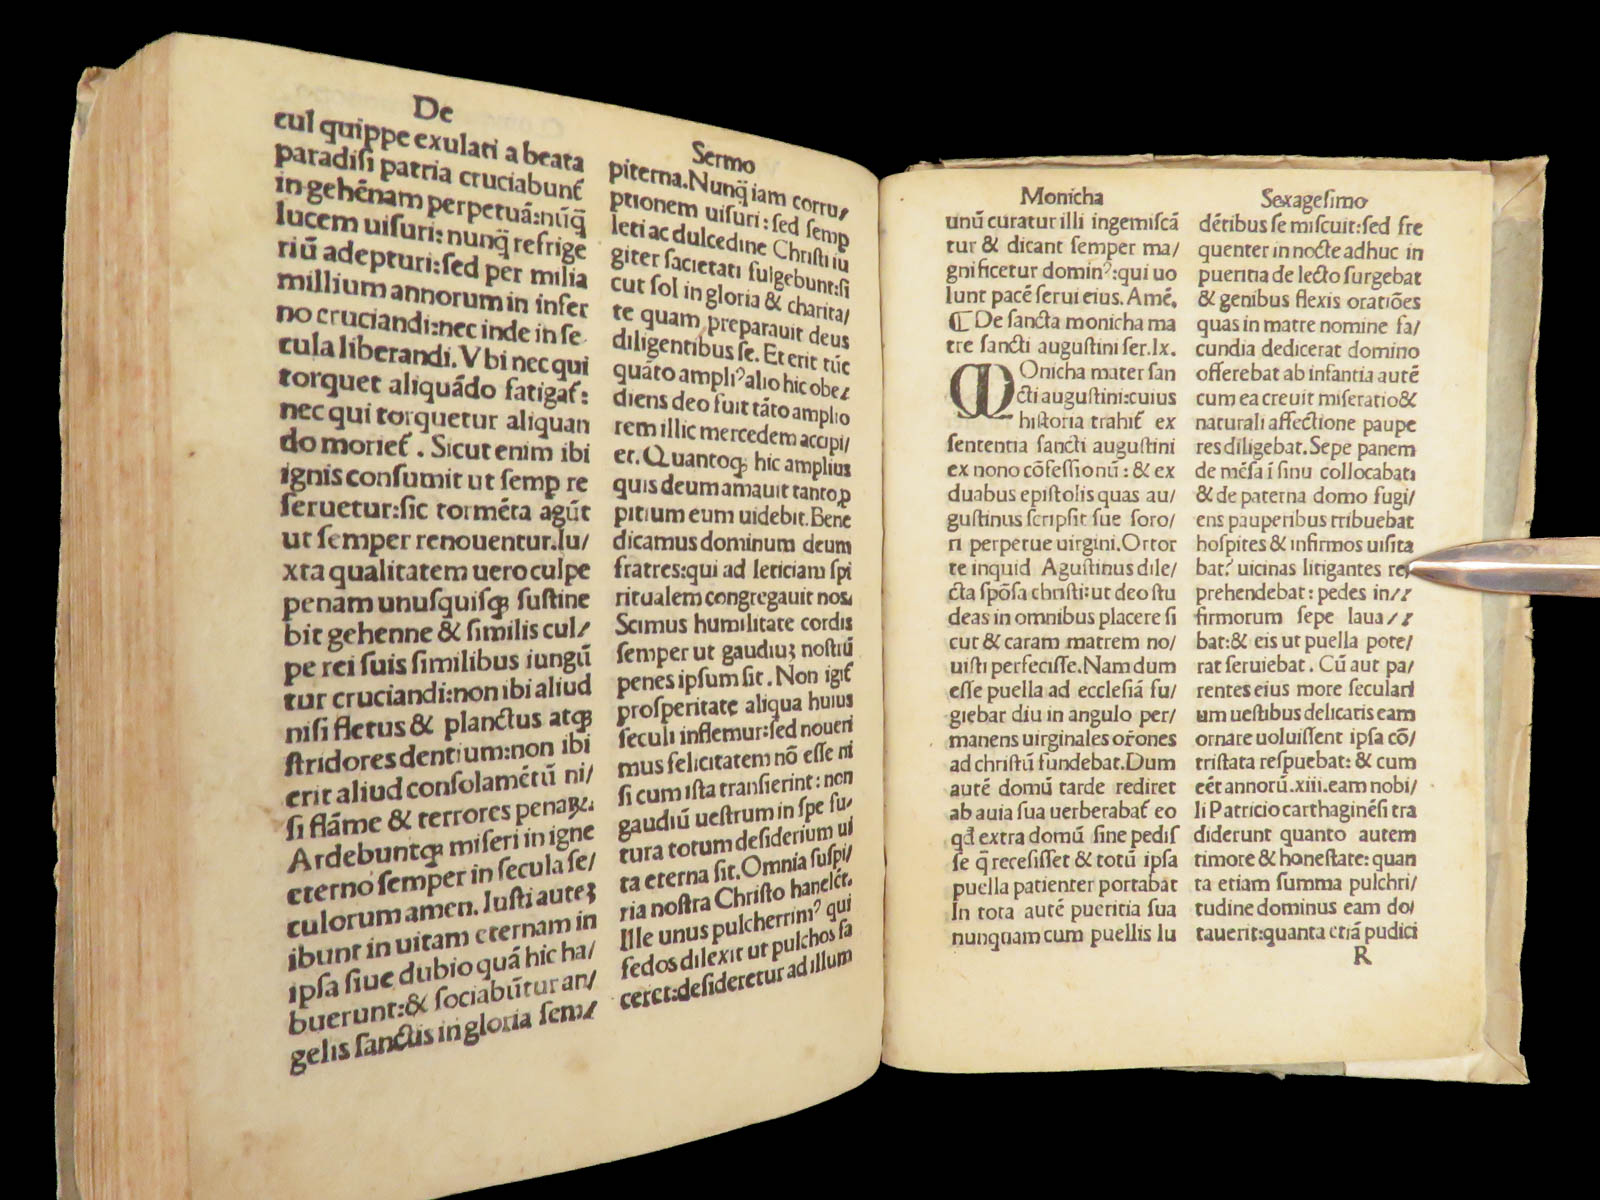 De
cul quippe exulati a beata
paradisi patria cruciabunt᷑
in gehēnam perpetuā:nūq̄
lucem uisuri: nunq̄ refrige
riū adepturi:sed per milia
millium annorum in infer
no cruciandi:nec inde in se
cula liberandi. Vbi nec qui
torquet aliquādo fatigat᷑:
nec qui torquetur aliquan
do moriet᷑. Sicut enim ibi
ignis consumit ut semp re
seruetur:sic tormēta agūt
ut semper renouentur. Iu/
xta qualitatem uero culpe
penam unusquisqꝫ sustine
bit gehenne & similis cul/
pe rei suis similibus iungū
tur cruciandi:non ibi aliud
nisi fletus & planctus atqꝫ
stridores dentium:non ibi
erit aliud consolamētū ni/
si flāme & terrores penaꝝ.
Ardebuntqꝫ miseri in igne
eterno semper in secula se/
culorum amen. Iusti auteꝫ
ibunt in uitam eternam in
ipsa siue dubio quā hic ha/
buerunt:& sociabūtur an/
gelis sanctis in gloria sem/
Sermo
piterna. Nunq̄ iam corru/
ptionem uisuri: sed semp
leti ac dulcedine Christi iu
giter sacietati fulgebunt:si
cut sol in gloria & charita/
te quam preparauit deus
diligentibus se. Et erit tūc
quāto ampliꝰ alio hic obe/
diens deo fuit tāto amplio
rem illic mercedem accipi/
et. Quantoqꝫ hic amplius
quis deum amauit tanto ꝓ
pitium eum uidebit. Bene
dicamus dominum deum
fratres:qui ad leticiam spi
ritualem congregauit nos.
Scimus humilitate cordis
semper ut gaudiuꝫ nostrū
penes ipsum sit. Non igit᷑
prosperitate aliqua huius
seculi inflemur:sed noueri
mus felicitatem nō esse ni
si cum ista transierint: non
gaudiū uestrum in spe fu/
tura totum desiderium ui
ta eterna sit. Omnia suspi/
ria nostra Christo hanelēt.
Ille unus pulcherrimꝰ qui
fedos dilexit ut pulchos fa
ceret:desideretur ad illum
Monicha
unū curatur illi ingemiscā
tur & dicant semper ma/
gnificetur dominꝰ:qui uo
lunt pacē serui eius. Amē.
⸿ De sancta monicha ma
tre sancti augustini ser. lx.
MOnicha mater san
cti augustini:cuius
historia trahit᷑ ex
sententia sancti augustini
ex nono cōfessionū: & ex
duabus epistolis quas au/
gustinus scripsit sue soro/
ri perpetue uirgini. Ortor
te inquid Agustinus dile/
cta spōsa christi:ut deo stu
deas in omnibus placere si
cut & caram matrem no/
uisti perfecisse. Nam dum
esse puella ad ecclesiā fu/
giebar diu in angulo per/
manens uirginales or̄ones
ad christū fundebat. Dum
autē domū tarde rediret
ab auia sua uerberabat᷑ eo
qđ extra domū sine pedis
se q̄ recesisset & totū ipsa
puella patienter portabat
In tota autē pueritia sua
nunquam cum puellis lu
Sexagesimo
dētibus se miscuit:sed fre
quenter in nocte adhuc in
pueritia de lecto surgebat
& genibus flexis oratiōes
quas in matre nomine fa/
cundia dedicerat domino
offerebat ab infantia autē
cum ea creuit miseratio &
naturali affectione paupe
res diligebat. Sepe panem
de mēsa ī sinu collocabatı
& de paterna domo fugi/
ens pauperibus tribuebat
hospites & infirmos uisita
bat: uicinas litigantes re/
prehendebat: pedes in/
firmorum sepe laua/
bat:& eis ut puella pote/
rat seruiebat. Cū aut pa/
rentes eius more seculari
um uestibus delicatis eam
ornare uoluissent ipsa cō/
tristata respuebat: & cum
eēt annorū .xiii. eam nobi/
li Patricio carthaginēsi tra
diderunt quanto autem
timore & honestate: quan
ta etiam summa pulchri/
tudine dominus eam do/
tauerit:quanta etiā pudici
R